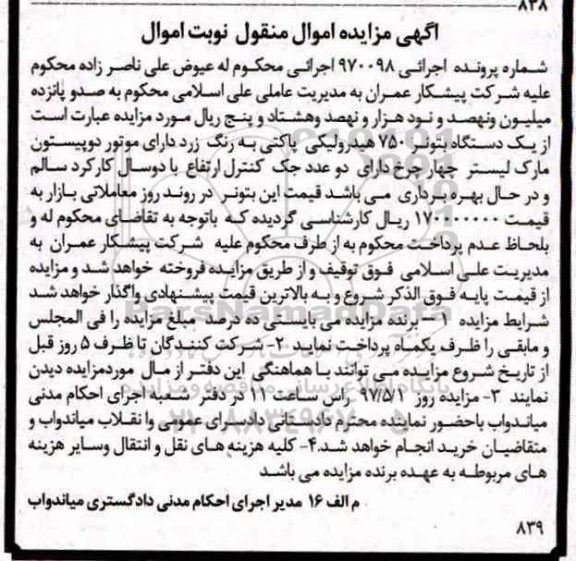 ۸۳۸
آگهی مزایده اموال منقول نوبت اموال
شماره پرونده اجرائی ۹۷۰۰۹۸ اجرائی محکوم له عیوض علی ناصر زاده محکوم
علیه شرکت پیشکار عمران به مدیریت عاملی علی اسلامی محکوم به صدو پانزده
میلیون ونهصد و نود هزار و نهصد وهشتاد و پنج ریال مورد مزایده عبارت است
از یک دستگاه بتونر ۷۵۰ هیدرولیکی پاکتی به رنگ زرد دارای موتور دوپیستون
مارک لیستر چهار چرخ دارای دو عدد جک کنترل ارتفاع با دوسال کارکرد سالم
و در حال بهره برداری می باشد قیمت این بتونر در روند روز معاملاتی بازار به
قیمت ۱۷۰۰۰۰۰۰۰ ریال کارشناسی گردیده که باتوجه به تقاضای محکوم له و
بلحاظ عدم پرداخت محکوم به از طرف محکوم علیه شرکت پیشکار عمران به
مدیریت علی اسلامی فوق توقیف و از طریق مزایده فروخته خواهد شد و مزایده
از قیمت پایه فوق الذکر شروع و به بالاترین قیمت پیشنهادی واگذار خواهد شد
شرایط مزایده ۱- برنده مزایده می بایستی ده درصد مبلغ مزایده را فی المجلس
و مابقی را ظرف یکماه پرداخت نماید ۲- شرکت کنندگان تا ظرف ۵ روز قبل
از تاریخ شروع مزایده می توانند با هماهنگی این دفتر از مال موردمزایده دیدن
نمایند ۳- مزایده روز ۹۷/۵/۱ راس ساعت ۱۱ در دفتر شعبه اجرای احکام مدنی
میاندواب باحضور نماینده محترم دادستانی دادسرای عمومی وانقلاب میاندواب و
متقاضیان خرید انجام خواهد شد.۴- کلیه هزینه های نقل و انتقال وسایر هزینه
های مربوطه به عهده برنده مزایده می باشد
م الف ۱۶ مدیر اجرای احکام مدنی دادگستری میاندواب
۸۳۹
ParsNamadData
پایگاه اطلاع رسانی مناقصه و مزایده